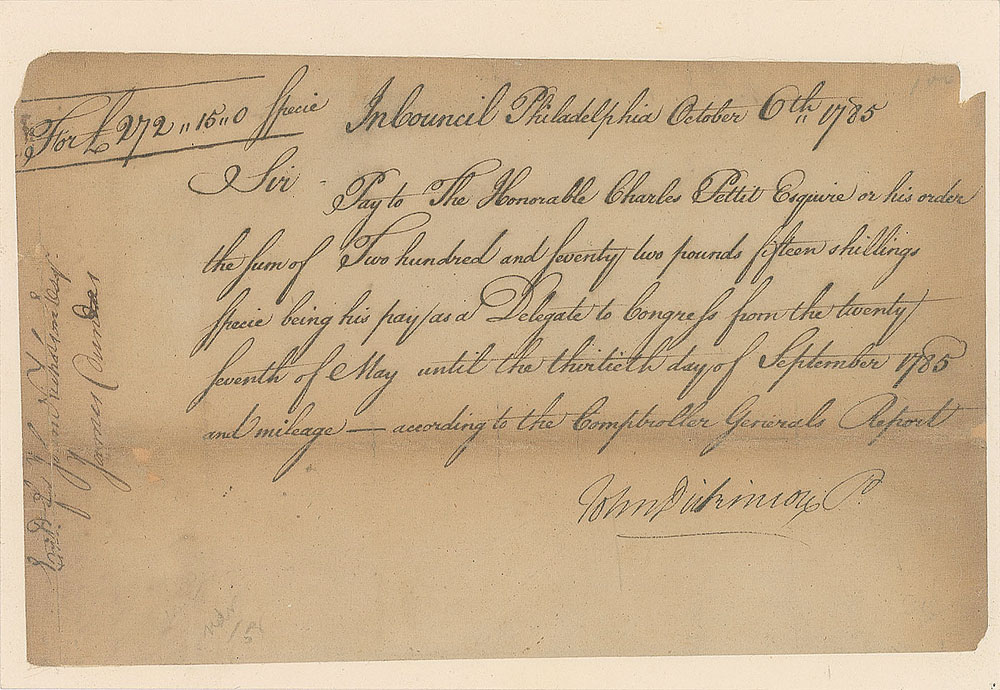 For £ 272 " 15 " 0 Specie
In Council Philadelphia October 6th 1785
Sir
Pay to The Honorable Charles Pettit Esquire or his order
the sum of Two hundred and seventy two pounds fifteen shillings
specie being his pay as a Delegate to Congress from the twenty
seventh of May until the thirtieth day of September 1785
and mileage — according to the Comptroller Generals Report
John Dickinson P.
James Dundas